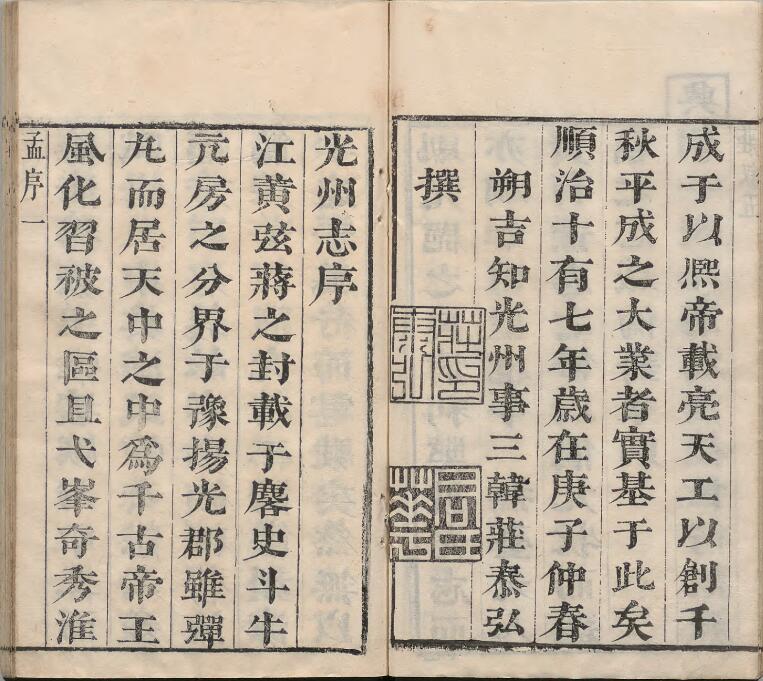 成于以熈帝載亮天工以創千
秋平成之大業者實基于此矣
順治十有七年歳在庚子仲春
朔吉知光州事三韓莊泰弘
撰
莊印泰弘
光州志序
江黄弦蔣之封載于麐史斗牛
元房之分界于豫揚光郡雖彈
丸而居天中之中爲千古帝王
風化習被之區且弋峯奇秀淮
孟序一